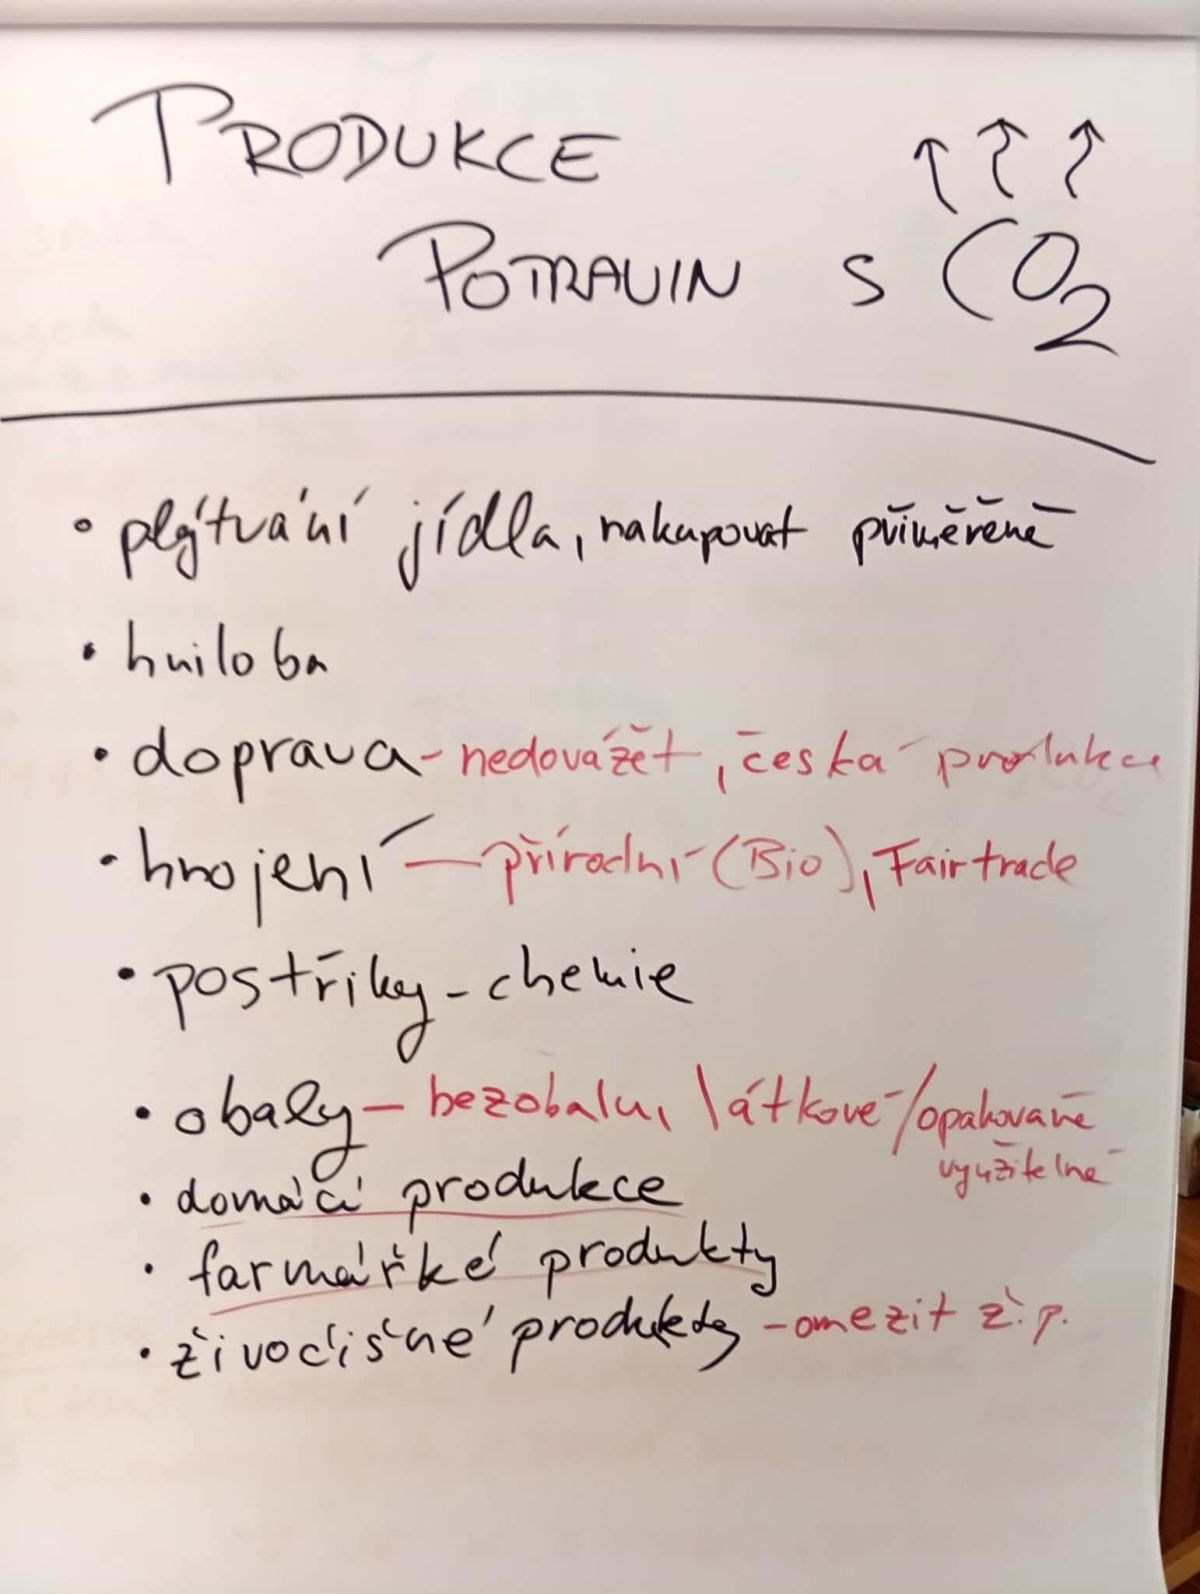 PRODUKCE
POTRAVIN s CO2
• plýtvání jídla, nakupovat přiměřeně
• hniloba
• doprava - nedovážět, česká produkce
• hnojení — přírodní (Bio), Fairtrade
• postřiky - chemie
• obaly - bezobalu, látkové/opakovaně
využitelné
• domácí produkce
• farmářké produkty
• živočišné produkty - omezit ž. p.